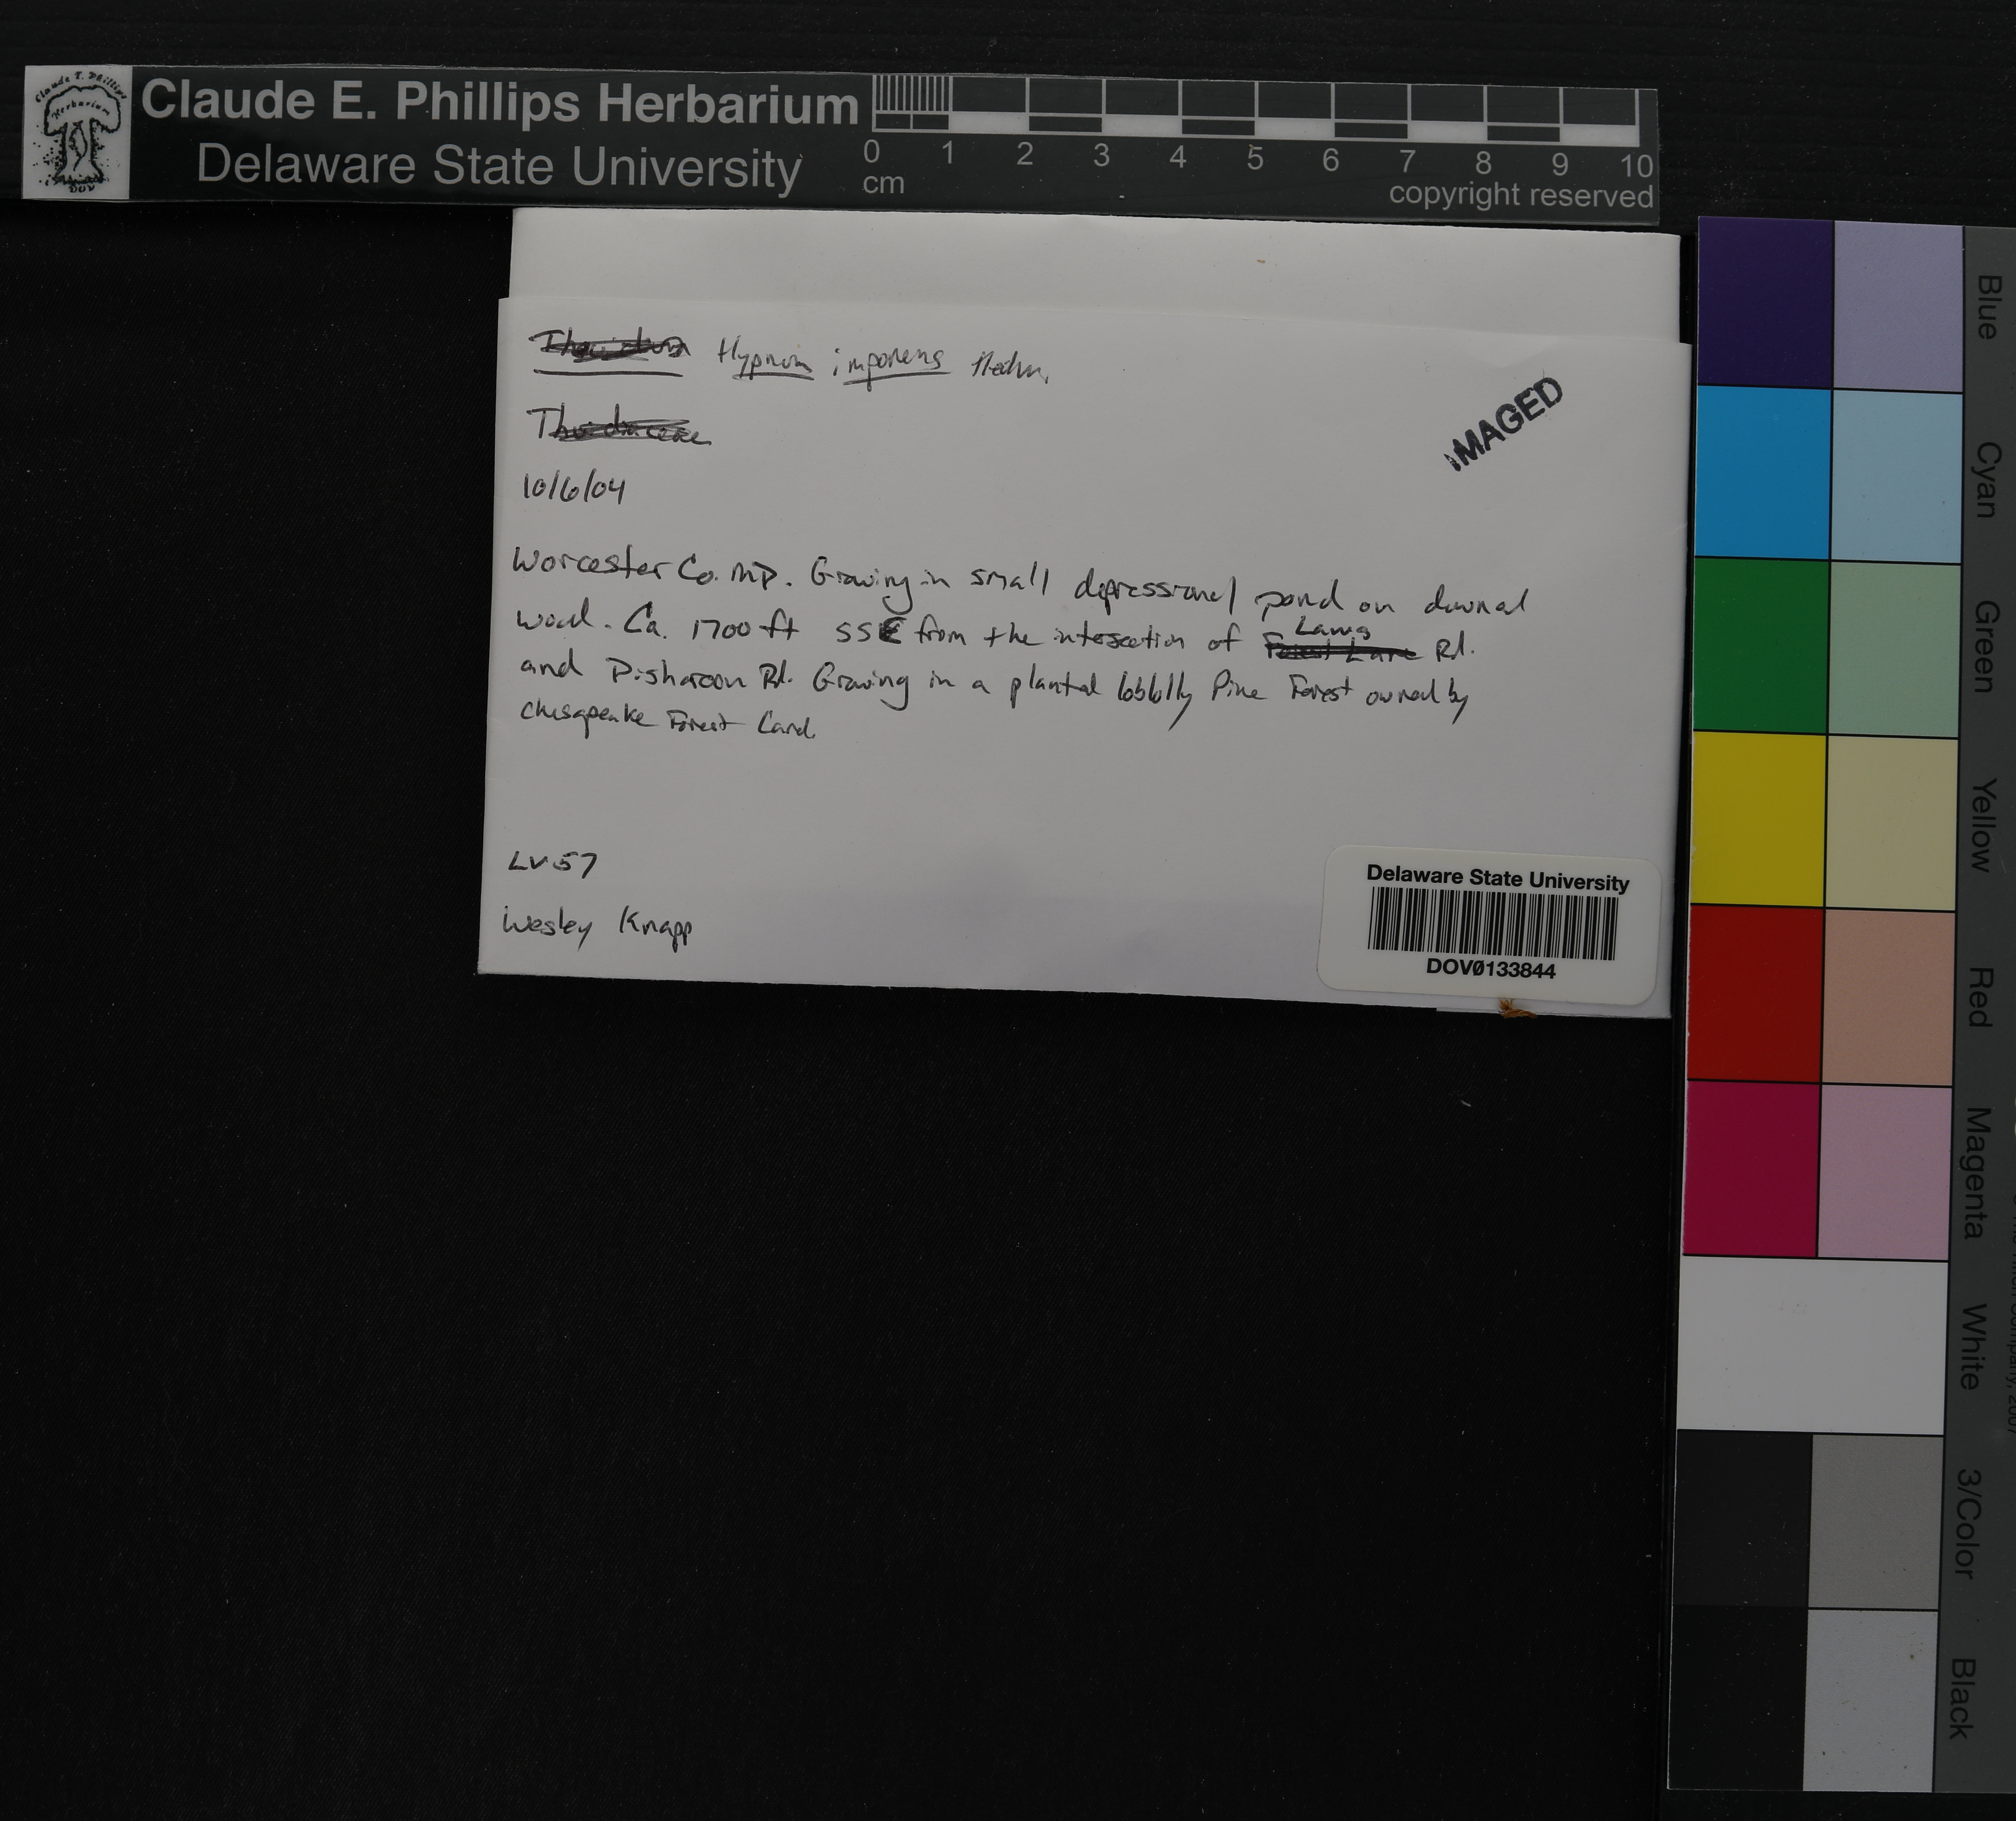 Claude E. Phillips Herbarium
Delaware State University
0 1 2 3 4 5 6 7 8 9 10
cm
copyright reserved
Claude E. Phillips
Herbarium
DOV
Thuidium Hypnum imponens Hedw.
Thuidiaceae
IMAGED
10/6/04
Worcester Co. MD. Growing in small depressional pond on downed
wood. Ca. 1700 ft SSE from the intersection of Forest Lane Laws Rd.
and Disharoon Rd. Growing in a planted loblolly Pine Forest owned by
Chesapeake Forest Land.
LV57
Wesley Knapp
Delaware State University
DOV0133844
Blue
Cyan
Green
Yellow
Red
Magenta
White
3/Color
Black